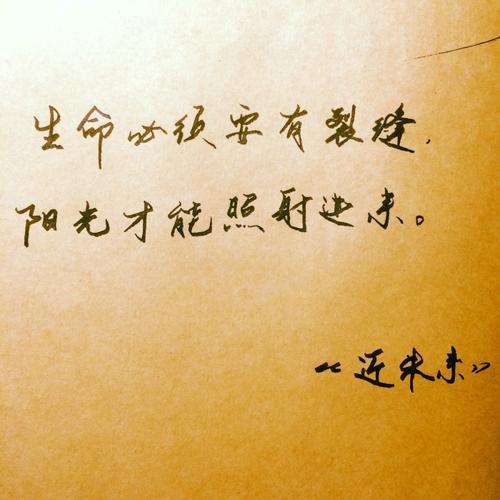 生命必须要有裂缝,
阳光才能照射进来。
《近未来》